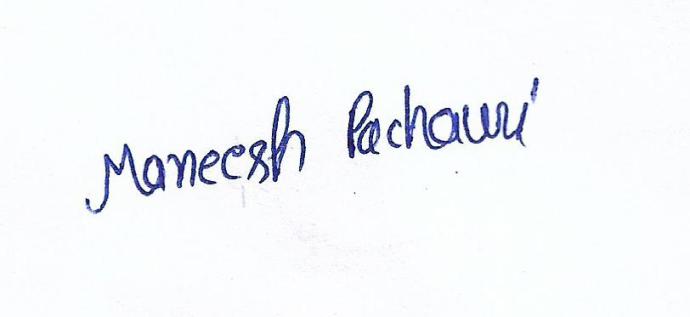 Maneesh Pachauri